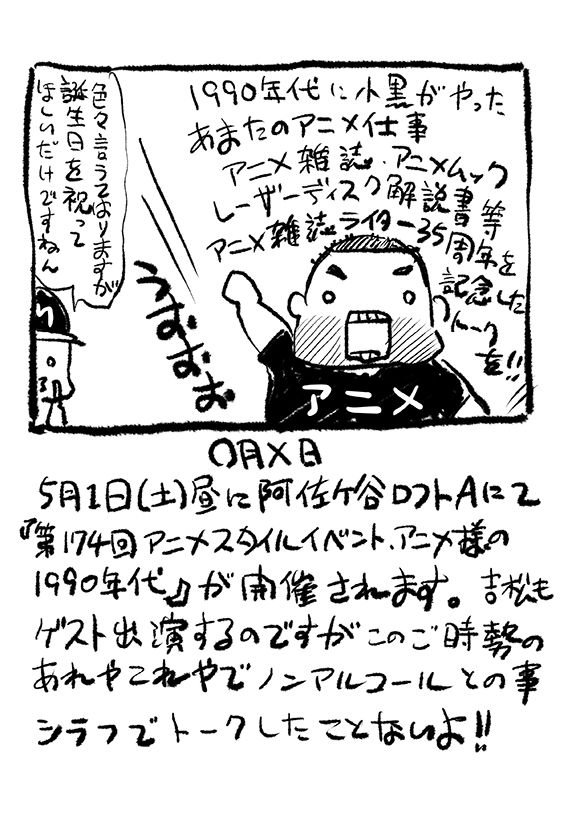 1990年代に小黒がやった
あまたのアニメ仕事
アニメ雑誌・アニメムック
レーザーディスク解説書等
アニメ雑誌ライター35周年を
記念した
トークを!!
色々言うておりますが
誕生日を祝って
ほしいだけですねん
うおおおお
アニメ
〇月×日
5月1日(土)昼に阿佐ケ谷ロフトAにて
『第174回アニメスタイルイベント、アニメ様の
1990年代』が開催されます。吉松も
ゲスト出演するのですがこのご時勢の
あれやこれやでノンアルコールとの事
シラフでトークしたことないよ!!